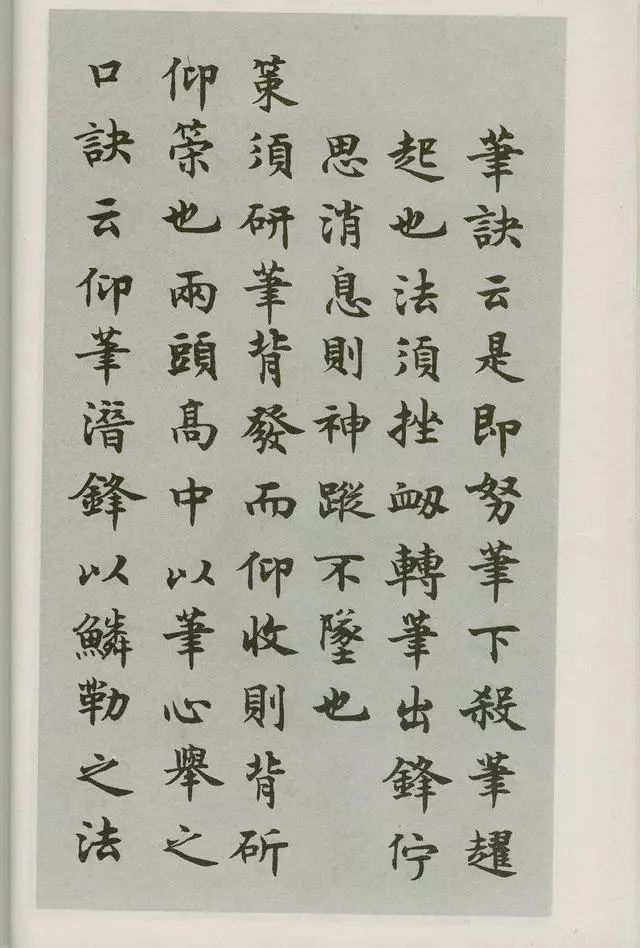 筆訣云是即努筆下殺筆趯
起也法須挫衂轉筆出鋒佇
思消息則神蹤不墜也
策須研筆背發而仰收則背斫
仰策也兩頭高中以筆心舉之
口訣云仰筆潛鋒以鱗勒之法